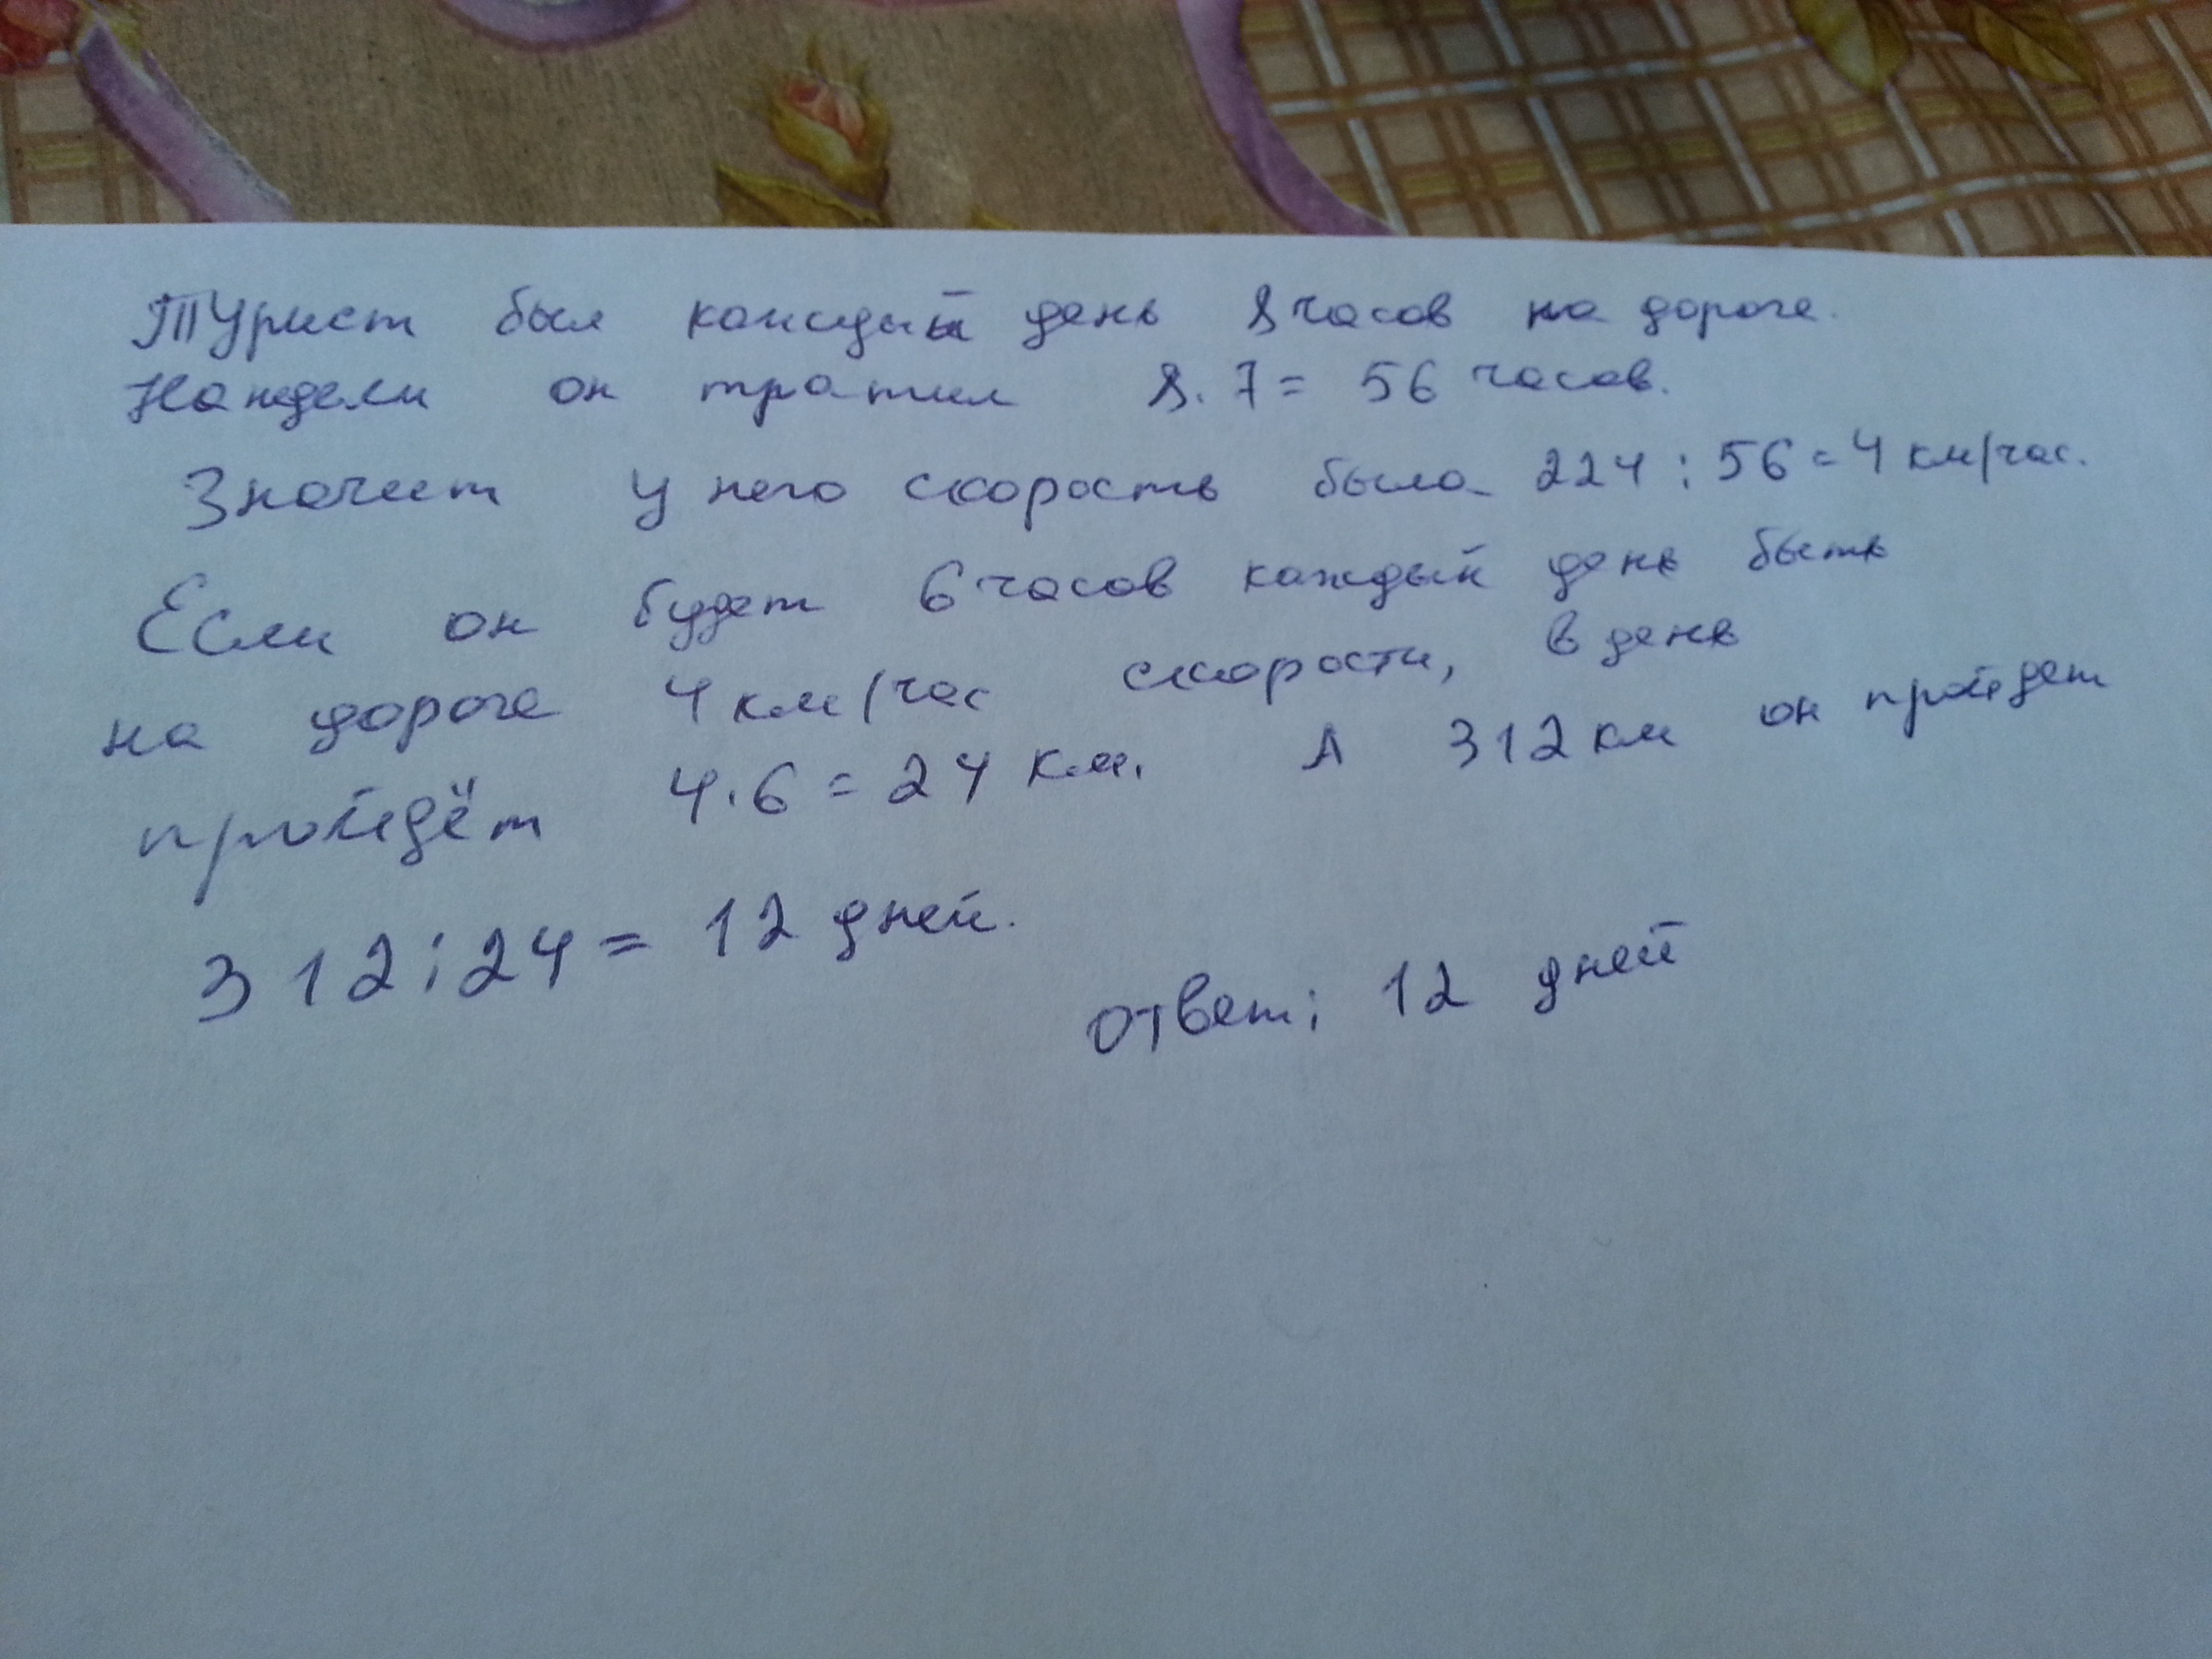 Турист был каждый день 8 часов на дороге.
На недели он тратил 8.7= 56 часов.
Значит у него скорость была 224:56=4 км/час.
Если он будет 6 часов каждый день быть
на дороге 4 км/час скорости, в день
пройдёт 4.6=24 км. А 312 км он пройдет
312:24= 12 дней.
ответ: 12 дней